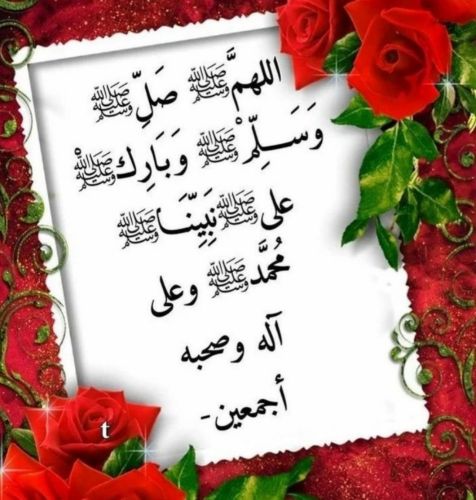 اللهمَّ ﷺ صَلِّ ﷺ
وَسَلِّمْ ﷺ وَبَارِك ﷺ
على ﷺ نَبِيِّنَا ﷺ
مُحمَّد ﷺ وعلى
آله وصحبه
أجمعين-
t